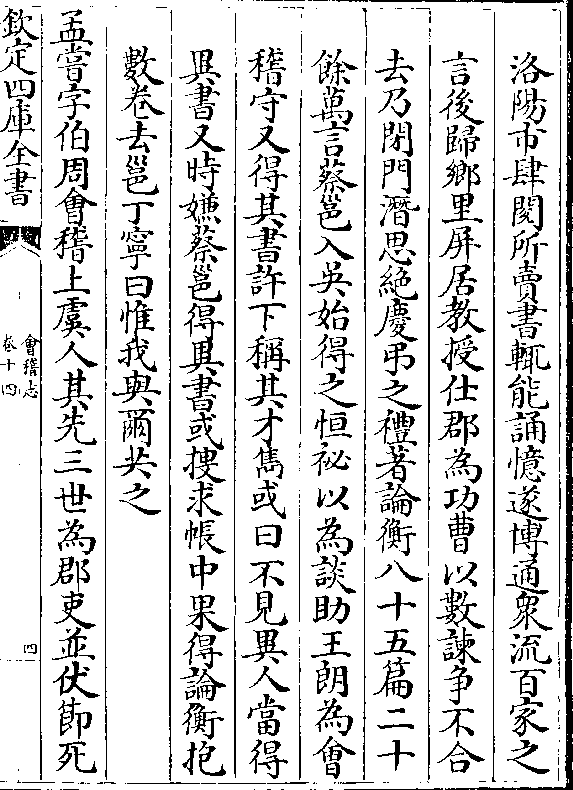 洛陽市肆閱所賣書輒能誦憶遂博通衆流百家之
言後歸鄉里屏居教授仕郡為功曹以數諫争不合
去乃閉門潛思絶慶弔之禮著論衡八十五篇二十
餘萬言蔡邕入吳始得之恒祕以為談助王朗為會
稽守又得其書許下稱其才雋或曰不見異人當得
異書又時嫌蔡邕得異書或捜求帳中果得論衡抱
數卷去邕丁寧曰惟我與爾共之
孟嘗字伯周會稽上虞人其先三世為郡吏並伏節死
欽定四庫全書
會稽志
卷十四
四